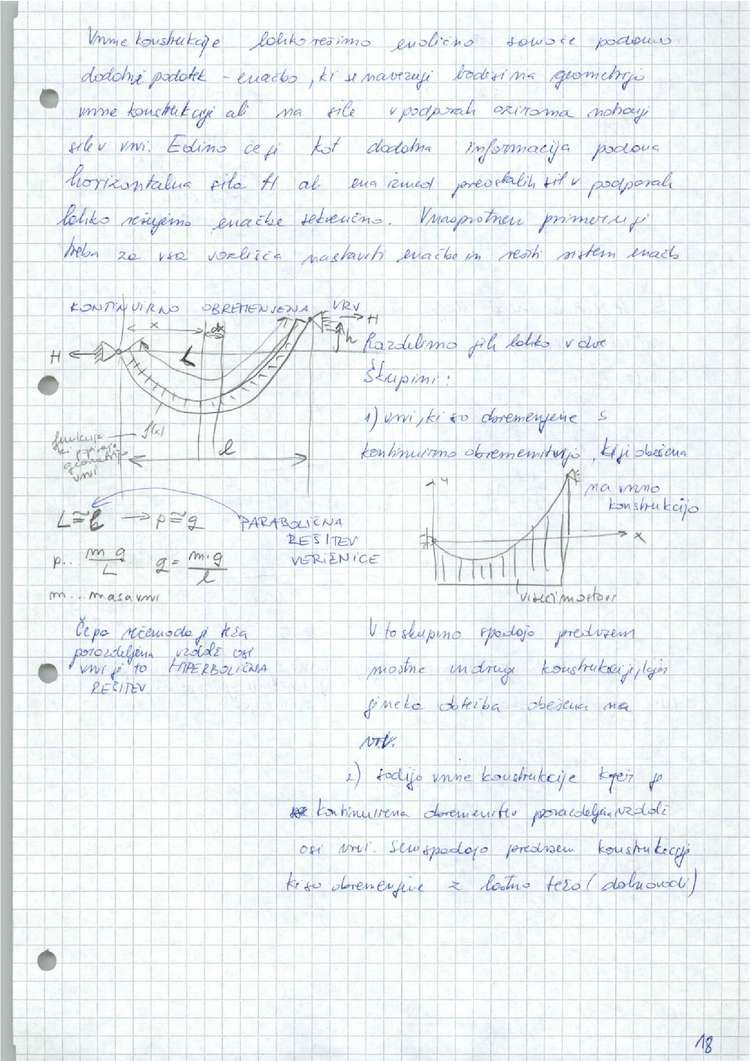 Vrvne konstrukcije lahko rešimo enolično samo če podamo
dodatni podatek - enačbo, ki se navezuje bodisi na geometrijo
vrvne konstrukcije ali na sile v podporah oziroma notranji
sile v vrvi. Edino če je kot dodatna informacija podana
horizontalna sila H ali ena izmed preostalih sil v podporah
lahko rešujemo enačbe sekvenčno. V nasprotnem primeru je
treba za vsa vozlišča nastaviti enačbe in rešiti sistem enačb
KONTINUIRNO OBREMENJENA VRV
x
dx
H
L
H
h
f(x)
funkcija
ki opisuje
geometrijo
vrvi
l
Razdelimo jih lahko v dve
skupini:
1) vrvi, ki so obremenjene s
kontinuirno obremenitvijo, ki je obešena
na vrvno
konstrukcijo
y
x
viseči mostovi
L ≅ l → p ≅ q
PARABOLIČNA
REŠITEV
VERIŽNICE
p... m·g/L q = m·g/l
m... masa vrvi
Če pa rečemo da je teža
porazdeljena vzdolž osi
vrvi je to HIPERBOLIČNA
REŠITEV
V to skupino spadajo predvsem
mostne in druge konstrukcije, kjer
je neka obtežba obešena na
vrv.
2) sodijo vrvne konstrukcije kjer je
kontinuirna obremenitev porazdeljena vzdolž
osi vrvi. Sem spadajo predvsem konstrukcije
ki so obremenjene z lastno težo (daljnovodi)
18